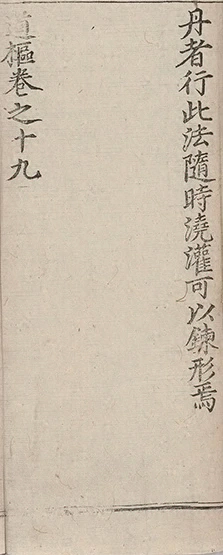 丹者行此法隨時澆灌可以鍊形焉
道樞卷之十九